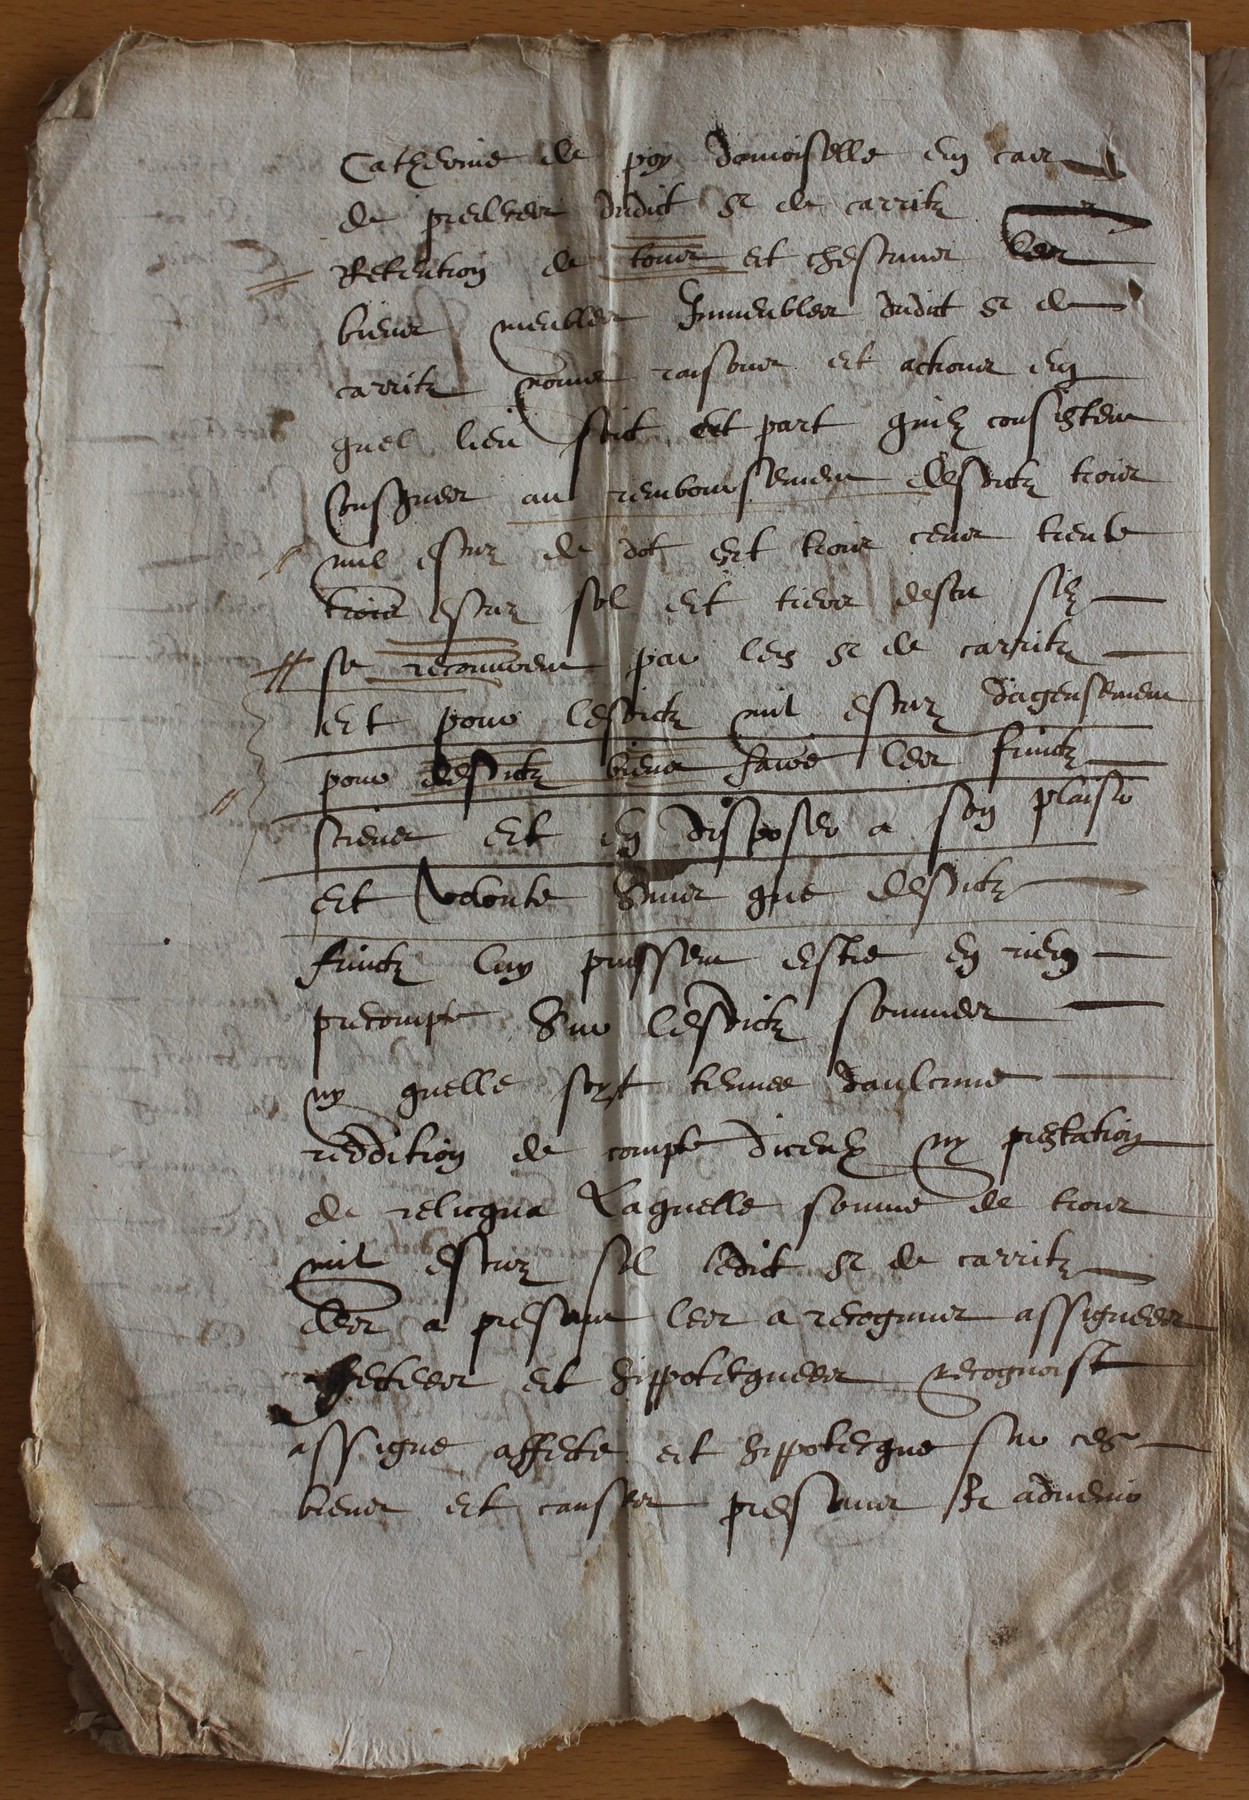 Catherine de poy damoiselle en cas
de predeces dudict sr de carritz
Retention de tous et chescuns les
biens meubles Immeubles dudict sr de
carritz noms raisons et actions en
quel lieu soit et part quilz consistent
Jusques au remboursement desdictz trois
mil escuz de dot et trois cens trente
trois escuz sol et tiers descu silz
se recouvrent par led sr de carritz
et pour lesdictz mil escuz dagensement
pour desdictz biens faire les fruictz
siens et en disposer a son plaisir
et volonte Sans que desdictz
fruictz luy puissent estre en rien
precompte Sur lesdictz sommes
ny quelle soyt tenue daulcune
reddition de compte diceulx ny prestation
de reliqua Laquelle somme de trois
mil escuz sol ledict sr de carritz
des a present les a recognus assignees
affectees et hippotecquees recognoist
assigne affecte et hippotecque sur ces
biens et causes presans & advenir